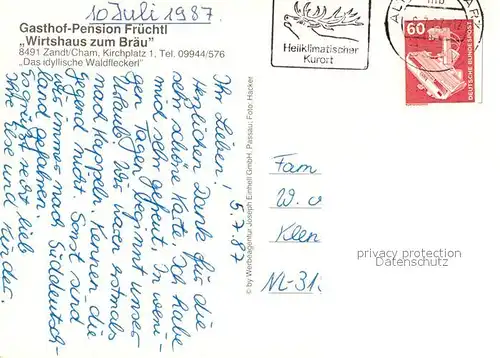 10 Juli 1987.
Gasthof-Pension Früchtl
"Wirtshaus zum Bräu"
8491 Zandt/Cham, Kirchplatz 1, Tel. 09944/576
"Das idyllische Waldfleckerl"
Heilklimatischer
Kurort
60
DEUTSCHE BUNDESPOST
5.7.87
Ihr Lieben!
Herzlichen Dank für die
sehr schöne Karte. Ich habe
mich sehr gefreut. In weni-
gen Tagen beginnt unser
Urlaub. Wir waren erstmals
nach Kappeln. Kennen die
Gegend nicht. Sonst sind
wir immer nach Süddeutsch-
land gefahren.
Es grüßt recht lieb
Ihre Else und
Kinder.
© by Werbeagentur Joseph Einhell GmbH, Passau; Foto: Hacker
Fam
W. v
Klen
NL-31
privacy protection
Datenschutz